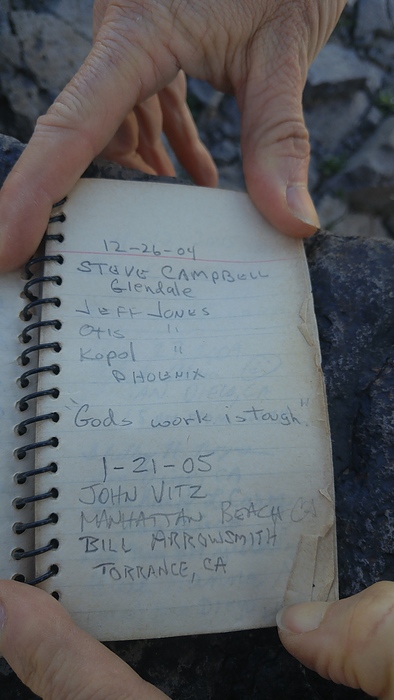 12-26-04
STEVE CAMPBELL
Glendale
JEFF JONES
Otis "
Kopol "
PHOENIX
"Gods work is tough."
1-21-05
JOHN VITZ
MANHATTAN BEACH CA
BILL ARROWSMITH
TORRANCE, CA